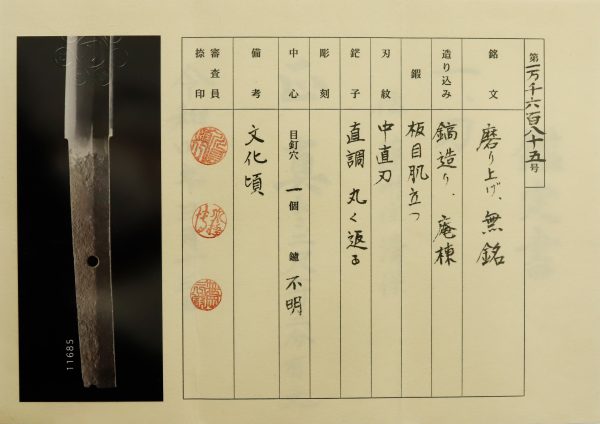 第一万千六百八十五号
銘文 磨り上げ、無銘
造り込み 鎬造り、庵棟
鍛 板目肌立つ
刃紋 中直刃
鋩子 直調 丸く返る
彫刻
中心 目釘穴 一個 鑢 不明
備考 文化頃
審査員捺印
11685